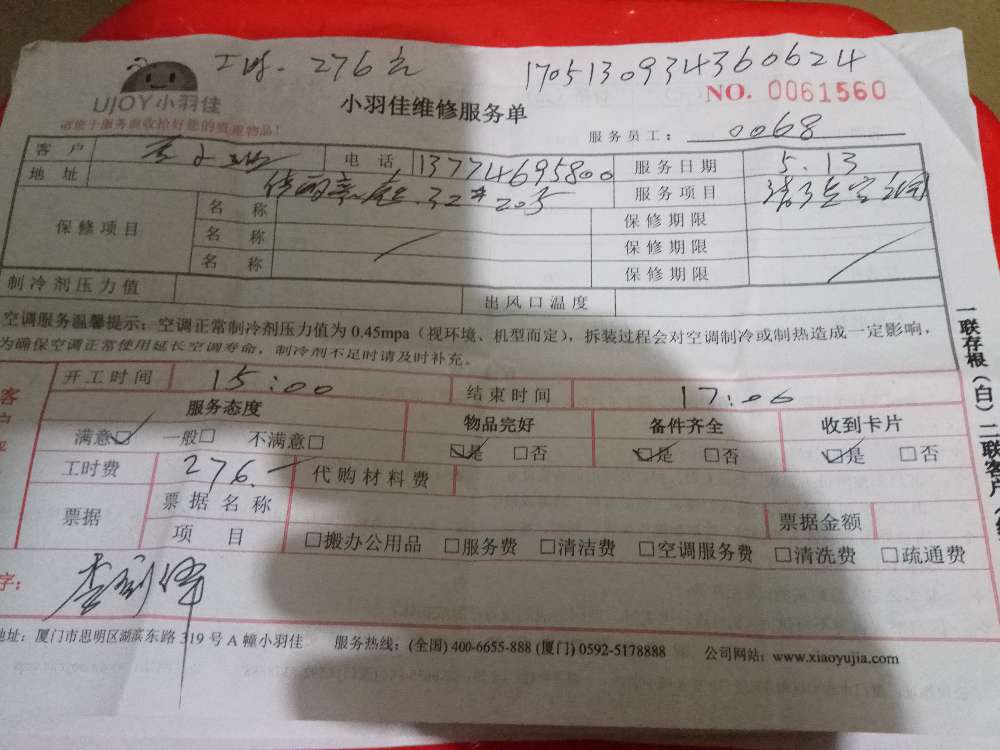 工时. 276元
17051309343606​24
UJOY小羽佳
小羽佳维修服务单
NO. 0061560
请您于服务前收拾好您的贵重物品!
服务员工: 0068
客户 电话 13774695800 服务日期 5.13
地址 32# 205 服务项目
保修项目 名称 保修期限
名称 保修期限
名称 保修期限
制冷剂压力值 出风口温度
空调服务温馨提示: 空调正常制冷剂压力值为0.45mpa(视环境、机型而定), 拆装过程会对空调制冷或制热造成一定影响,
为确保空调正常使用延长空调寿命, 制冷剂不足时请及时补充。
开工时间 15:00 结束时间 17:06
服务态度 物品完好 备件齐全 收到卡片
满意☑ 一般□ 不满意□ ☑是 □否 ☑是 □否 ☑是 □否
工时费 276.- 代购材料费
票据 票据名称 票据金额
项目 □搬办公用品 □服务费 □清洁费 □空调服务费 □清洗费 □疏通费
字:
地址: 厦门市思明区湖滨东路319号A幢小羽佳 服务热线: (全国) 400-6655-888 (厦门) 0592-5178888 公司网站: www.xiaoyujia.com
一联存根(白)二联客户